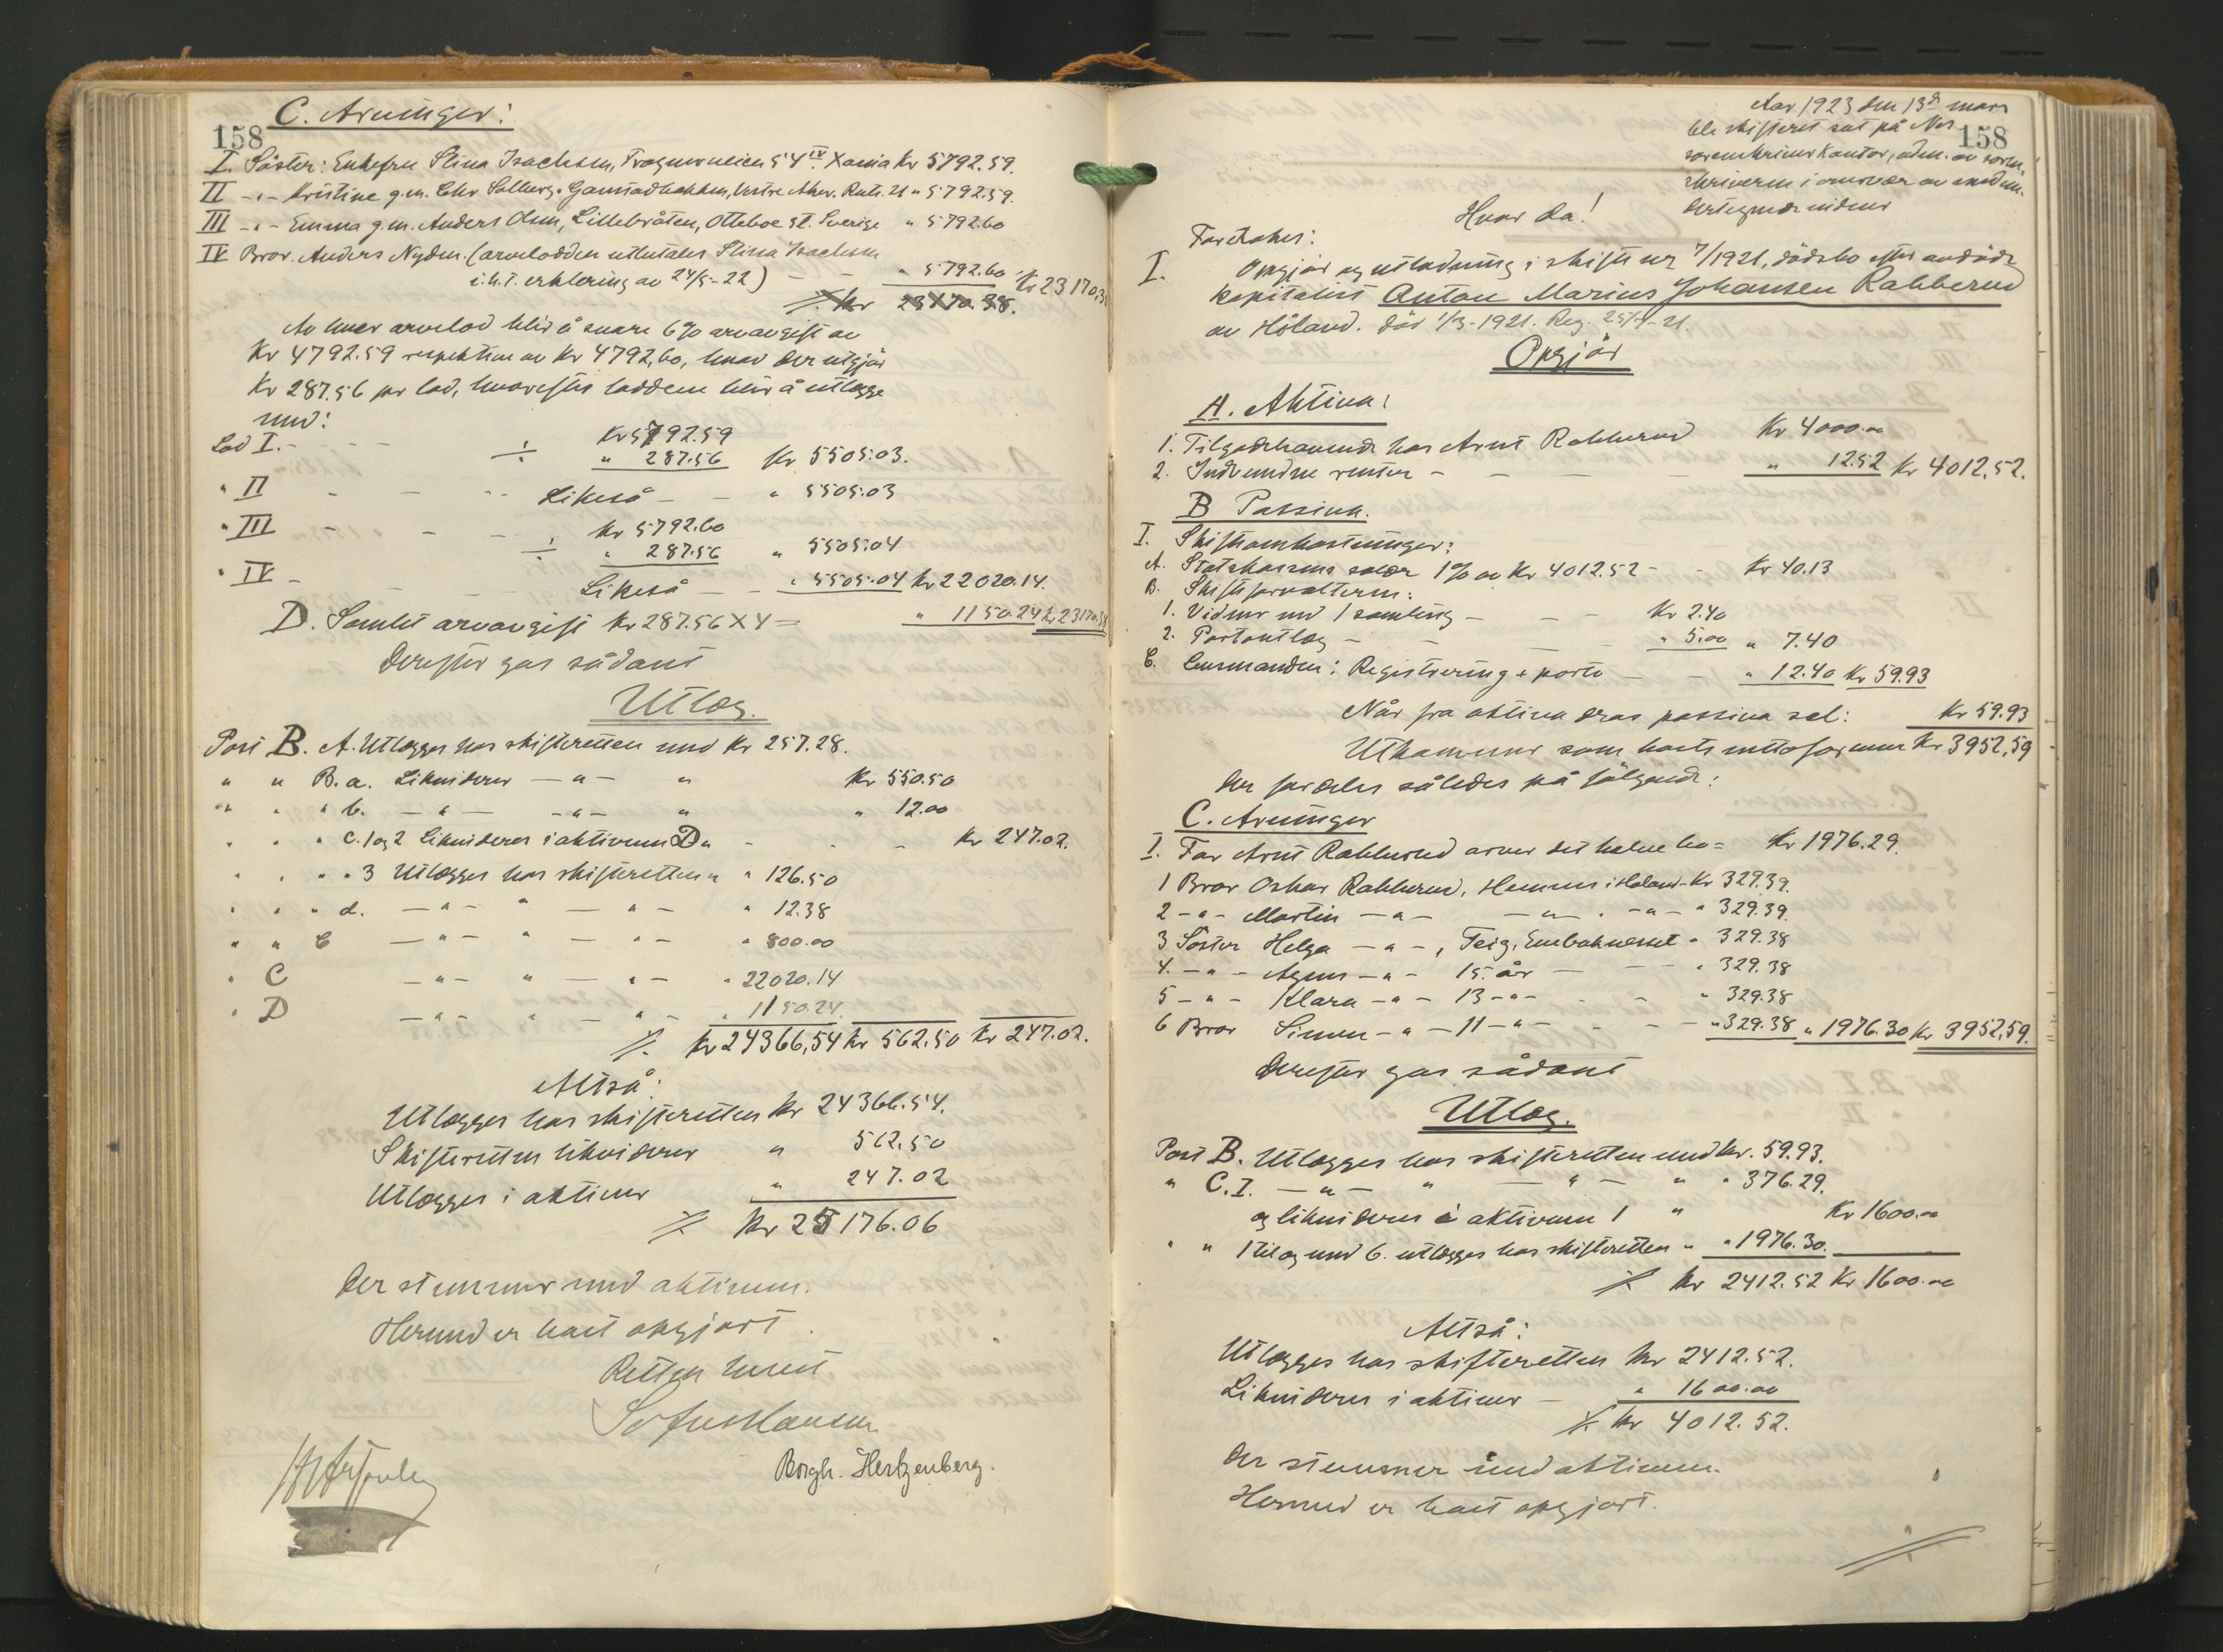 C. Arvinger:
158
I. Søster: Enkefru Stina Isachsen, Trognerveien 54 IV Xania Kr 5792.59.
II -„- Kristine g.m. Chr Solberg, Gaustadbakken, Vestre Aker. Rute 21 „ 5792.59.
III -„- Emma g.m. Anders Olsen, Lillebråten, Otteboe st. Sverige „ 5792.60
IV Bror. Anders Nydén. (arvelodden utbetales Stina Isachsen
i.h.t. erklæring av 24/5-22) - - „ 5792.60 Kr 23170,38
./. Kr 23170.38.
Av hver arvelod blir å svare 6% arvavgift av
Kr 4792.59 respektive av Kr 4792,60, hvad der utgjør
Kr 287.56 pr lod, hvorefter loddene blir å utlægge
med:
Lod I. - - - Kr 5792.59
÷ „ 287.56 Kr 5505.03.
„ II - - - Likeså - - „ 5505.03
„ III - - Kr 5792.60
÷ „ 287.56 „ 5505.04
„ IV - - - Likeså - - „ 5505.04 Kr 22020.14.
D. Samlet arvavgift Kr 287.56 X 4 = „ 1150.24 Kr 23170.38
Derefter gøs sådant
Utlæg.
Post B. A. Utlægges hos skifteretten med Kr 257.28.
„ „ B. a. Likviderer -„- „ Kr 550.50
„ „ „ b. -„- -„- „ „ 12.00
„ „ „ c. 1 og 2 Likvideres i aktivum D „ - - - Kr 247.02.
„ „ „ „ 3 Utlægges hos skifteretten „ „ 126.50
„ „ „ d. -„- „ -„- „ 12.38
„ „ C -„- „ -„- „ 800.00
„ C -„- „ -„- „ 22020.14
„ D -„- „ -„- „ 1150.24.
./. Kr 24366,54 Kr 562.50 Kr 247.02.
Altså:
Utlægges hos skifteretten Kr 24366.54.
Skifteretten likviderer „ 562.50
Utlægges i aktiver „ 247.02
./. Kr 25176.06
Der stemmer med aktivum.
Hermed er boet opgjort.
Retten hævet
Borgh. Hertzenberg.
Aar 1923 den 13de mars
ble skifteret sat på Nes
158
sorenskriverkontor, adm. av soren-
skriveren i overvær av medun-
dertegnede vidner
Hvor da!
Foretokes:
I. Opgjør og utlodning i skifte nr 7/1921, dødsbo efter avdøde
kapitalist Anton Marius Johansen Rakkerud
av Høland. død 1/3-1921. Reg. 25/4-21.
Opgjør
A. Aktiva:
1. Tilgodehavende hos Arnt Rakkerud Kr 4000.00
2. Indvundne renter - - - - „ 12.52 Kr 4012.52.
B Passiva.
I. Skifteomkostninger:
A. Statskassens salær 1% av Kr 4012.52 - - Kr 40.13
B. Skifteforvalteren:
1. Vidner ved 1 samling - - - Kr 2.40
2. Portoutlæg - - - - „ 5.00 „ 7.40
C. Lensmanden: Registrering + porto - - „ 12.40 Kr 59.93
Når fra aktiva dras passiva sal: Kr 59.93
Utkommer som boets nettoformue Kr 3952,59
der fordeles således på følgende:
C. Arvinger
I. Far Arnt Rakkerud arver det halve bo = Kr 1976.29.
1 Bror Oskar Rakkerud, Hemnes i Høland - Kr 329.39.
2 -„- Martin -„- -„- . -„- „ 329.39.
3 Søster Helga -„-, Teig, Enebakneset „ 329.38
4. -„- Agnes -„- 15 år - - - „ 329.38
5 -„- Klara -„- 13 -„- - - „ 329.38
6 Bror Simen -„- 11 -„- - - - „ 329.38 „ 1976.30 Kr 3952,59.
Derefter gøs sådant
Utlæg.
Post B. Utlægges hos skifteretten med Kr. 59.93.
„ C. I. -„- „ -„- „ „ 376.29.
og likvideres i aktivum 1 „ Kr 1600.00
„ „ 1 til og med 6. utlægges hos skifteretten „ „ 1976.30.
./. Kr 2412.52 Kr 1600.00
Altså:
Utlægges hos skifteretten Kr 2412.52.
Likvideres i aktiver - „ 1600.00
./. Kr 4012.52.
Der stemmer med aktivum.
Hermed er boet opgjort.